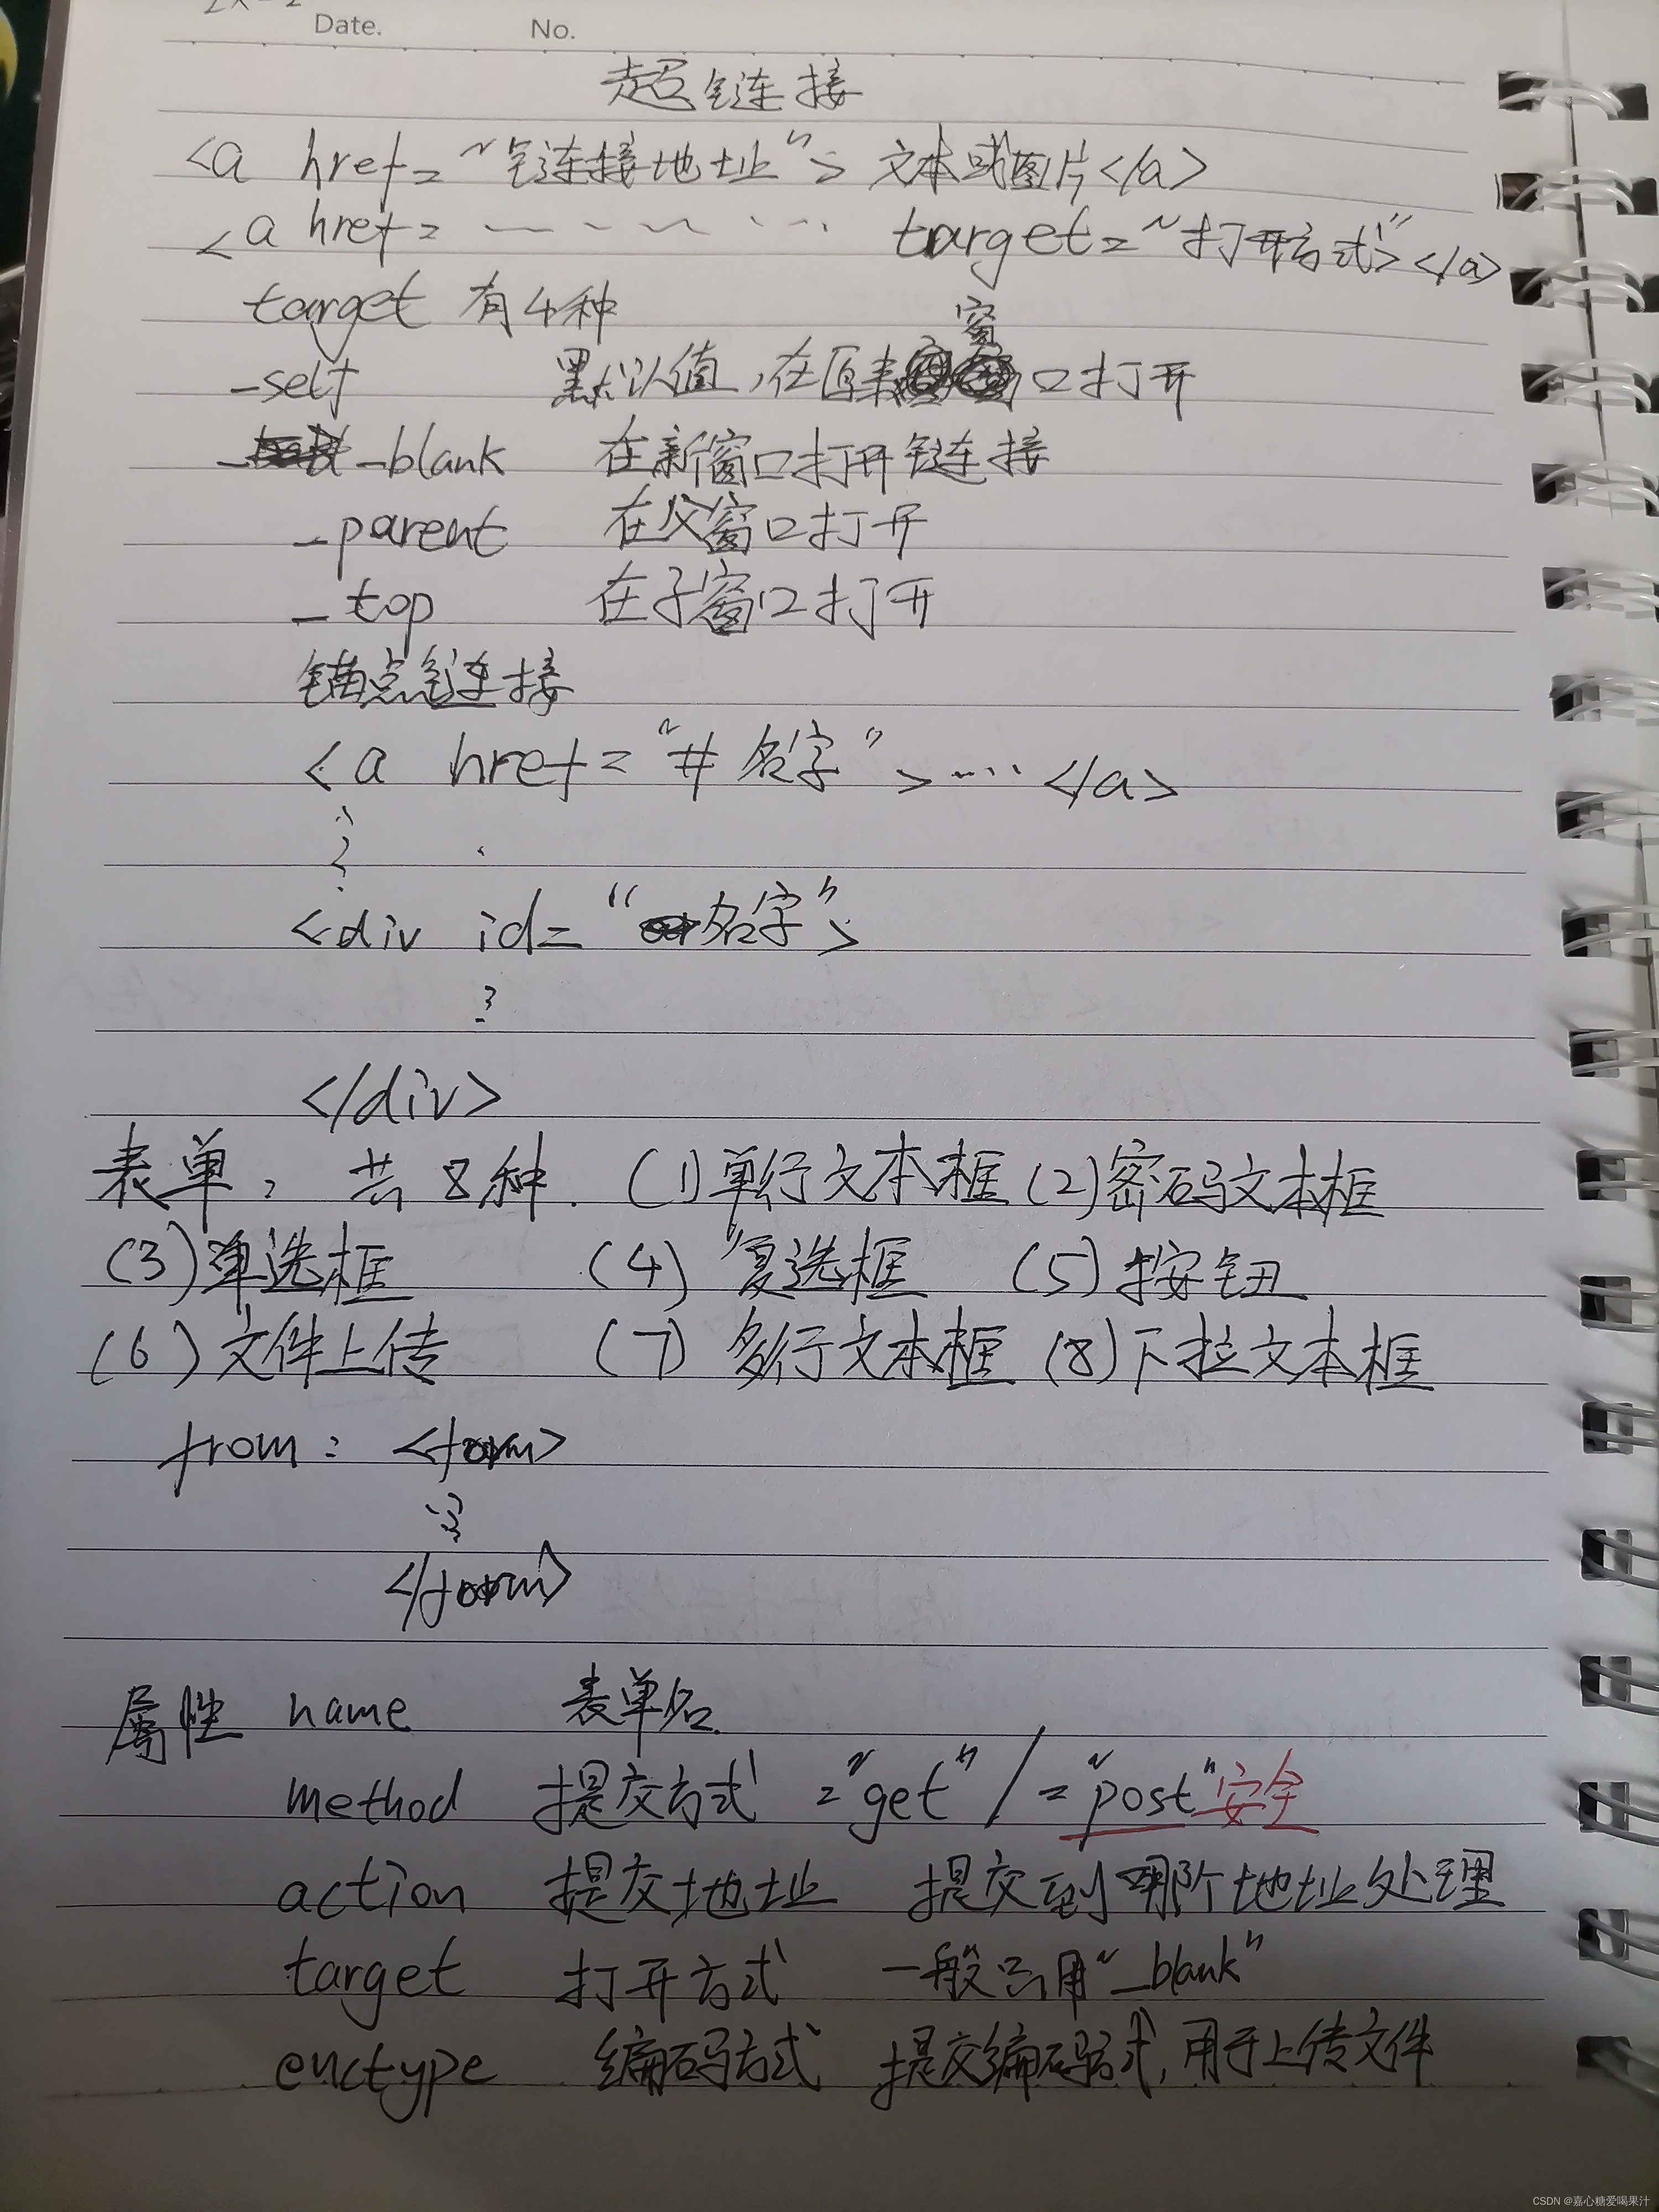 Date. No.
超链接
<a href="链连接地址"> 文本或图片</a>
<a href= …… target="打开方式"></a>
target 有4种
_self 默认值,在原来窗口打开
_blank 在新窗口打开链连接
_parent 在父窗口打开
_top 在子窗口打开
锚点链连接
<a href="#名字">……</a>
<div id="名字">
</div>
表单, 共8种. (1)单行文本框 (2)密码文本框
(3)单选框 (4)复选框 (5)按钮
(6)文件上传 (7)多行文本框 (8)下拉文本框
from: <form>
</form>
属性 name 表单名
method 提交方式 ="get" / ="post"安全
action 提交地址 提交到哪个地址处理
target 打开方式 一般只用"_blank"
enctype 编码方式 提交编码方式,用于上传文件
CSDN @嘉心糖爱喝果汁